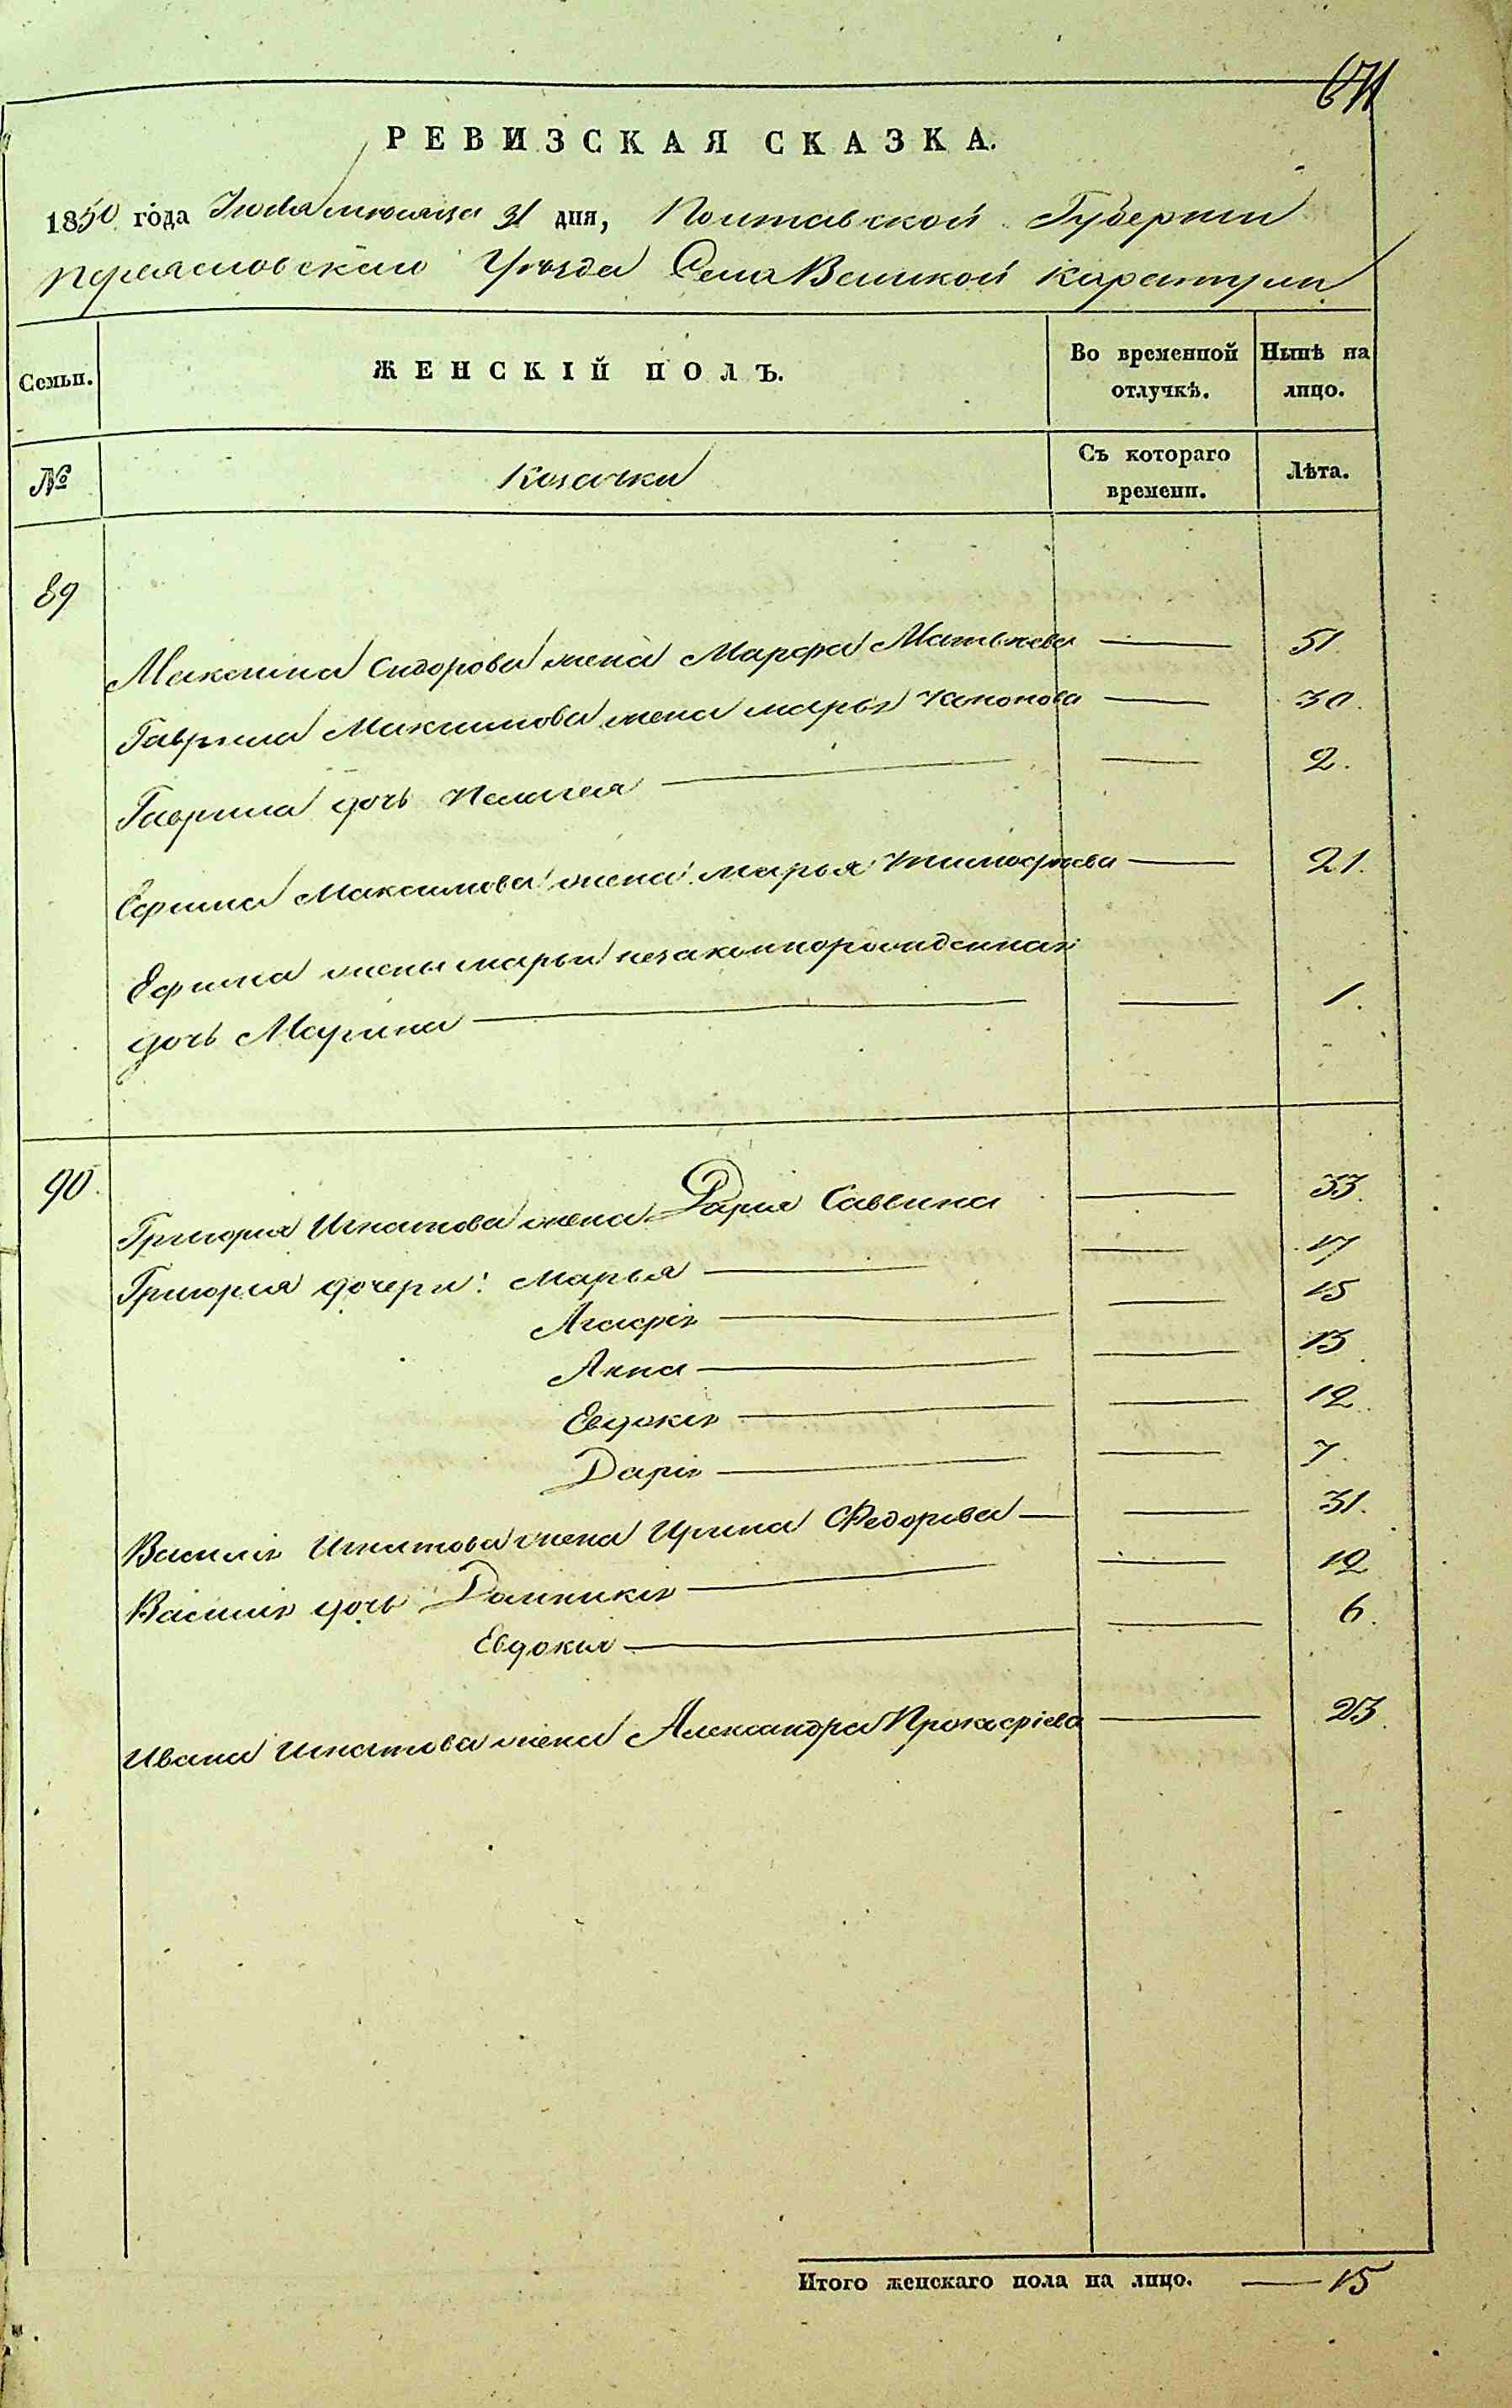 671
РЕВИЗСКАЯ СКАЗКА.
1850 года Июля месяца 31 дня, Полтавской Губернии
Переясловскаго Уѣзда Села Великой Каратули
Семьи. ЖЕНСКІЙ ПОЛЪ. Во временной отлучкѣ. Нынѣ на лицо.
№ Козачки Съ котораго времени. Лѣта.
89
Максима Сидорова жена Марфа Матвѣева — 51.
Гаврила Максимова жена марья Кононова — 30.
Гаврила дочь Пелагея — — 2.
Ефима Максимова жена марья Тимофѣева — 21.
Ефима жены марьи незаконнорожденная
дочь Марина — — 1.
90.
Григорія Игнатова жена Дарія Саввина — 33.
Григорія дочери: марья — — 17
Агафія — — 15
Анна — — 13
Евдокія — — 12.
Дарія — — 7.
Василія Игнатова жена Ирина Федорова — — 31.
Василія дочь Домникія — — 12
Евдокия — — 6.
Ивана Игнатова жена Александра Прокофіева — 23.
Итого женскаго пола на лицо. — 15